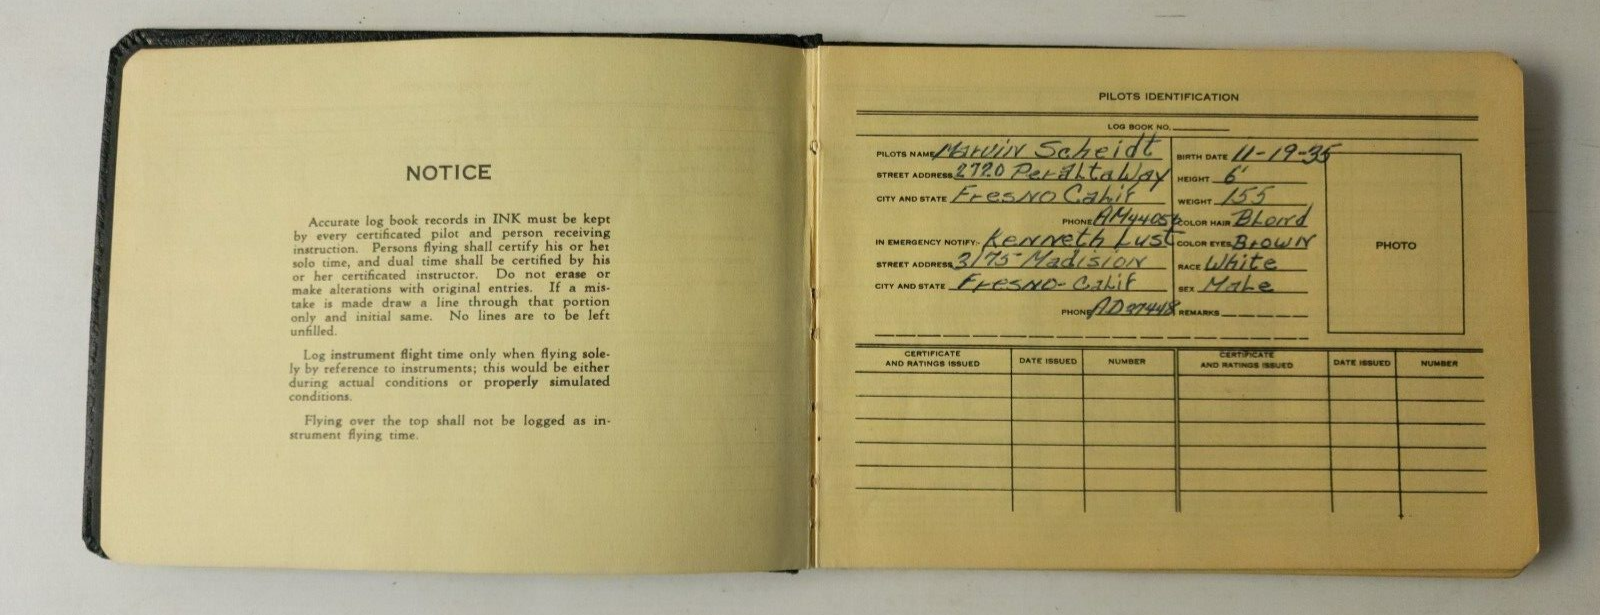 NOTICE
Accurate log book records in INK must be kept
by every certificated pilot and person receiving
instruction. Persons flying shall certify his or her
solo time, and dual time shall be certified by his
or her certificated instructor. Do not erase or
make alterations with original entries. If a mis-
take is made draw a line through that portion
only and initial same. No lines are to be left
unfilled.
Log instrument flight time only when flying sole-
ly by reference to instruments; this would be either
during actual conditions or properly simulated
conditions.
Flying over the top shall not be logged as in-
strument flying time.
PILOTS IDENTIFICATION
LOG BOOK NO.
PILOTS NAME Marvin Scheidt
STREET ADDRESS 2720 Peralta Way
CITY AND STATE Fresno Calif
PHONE AM44056
IN EMERGENCY NOTIFY:- Kenneth Lust
STREET ADDRESS 3175 Madision
CITY AND STATE Fresno- Calif
PHONE AD37448
BIRTH DATE 11-19-35
HEIGHT 6'
WEIGHT 155
COLOR HAIR Blond
COLOR EYES Brown
RACE White
SEX Male
REMARKS
PHOTO
CERTIFICATE AND RATINGS ISSUED
DATE ISSUED
NUMBER
CERTIFICATE AND RATINGS ISSUED
DATE ISSUED
NUMBER